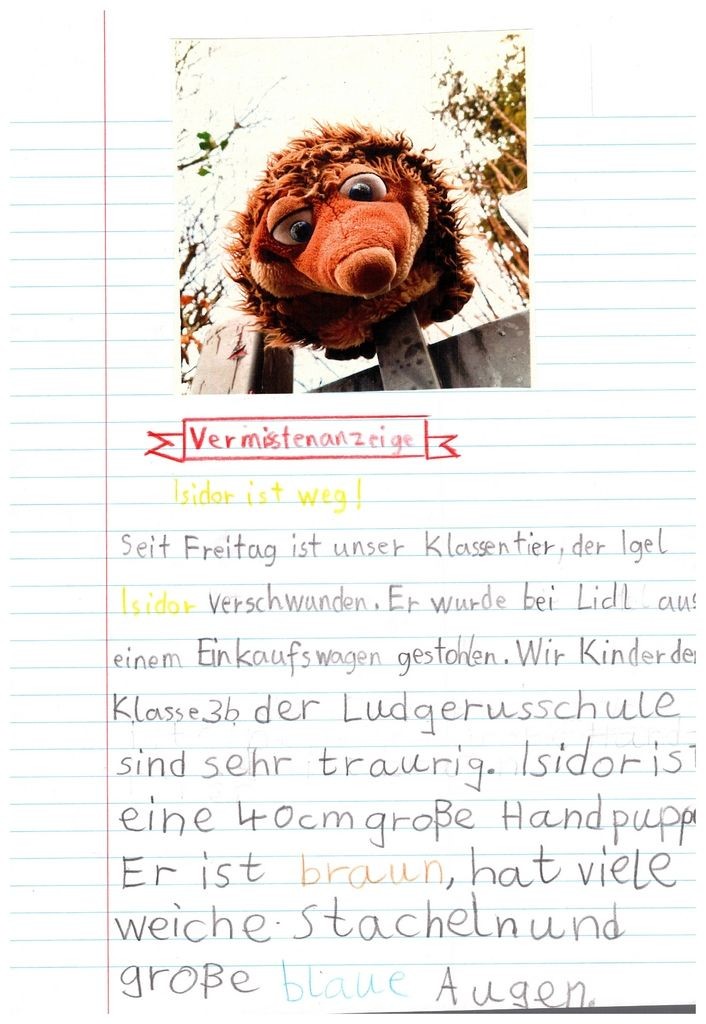 Vermisstenanzeige
Isidor ist weg!
Seit Freitag ist unser Klassentier, der Igel
Isidor verschwunden. Er wurde bei Lidl aus
einem Einkaufswagen gestohlen. Wir Kinder de
Klasse 3b der Ludgerusschule
sind sehr traurig. Isidor ist
eine 40cm große Handpupp
Er ist braun, hat viele
weiche Stacheln und
große blaue Augen.